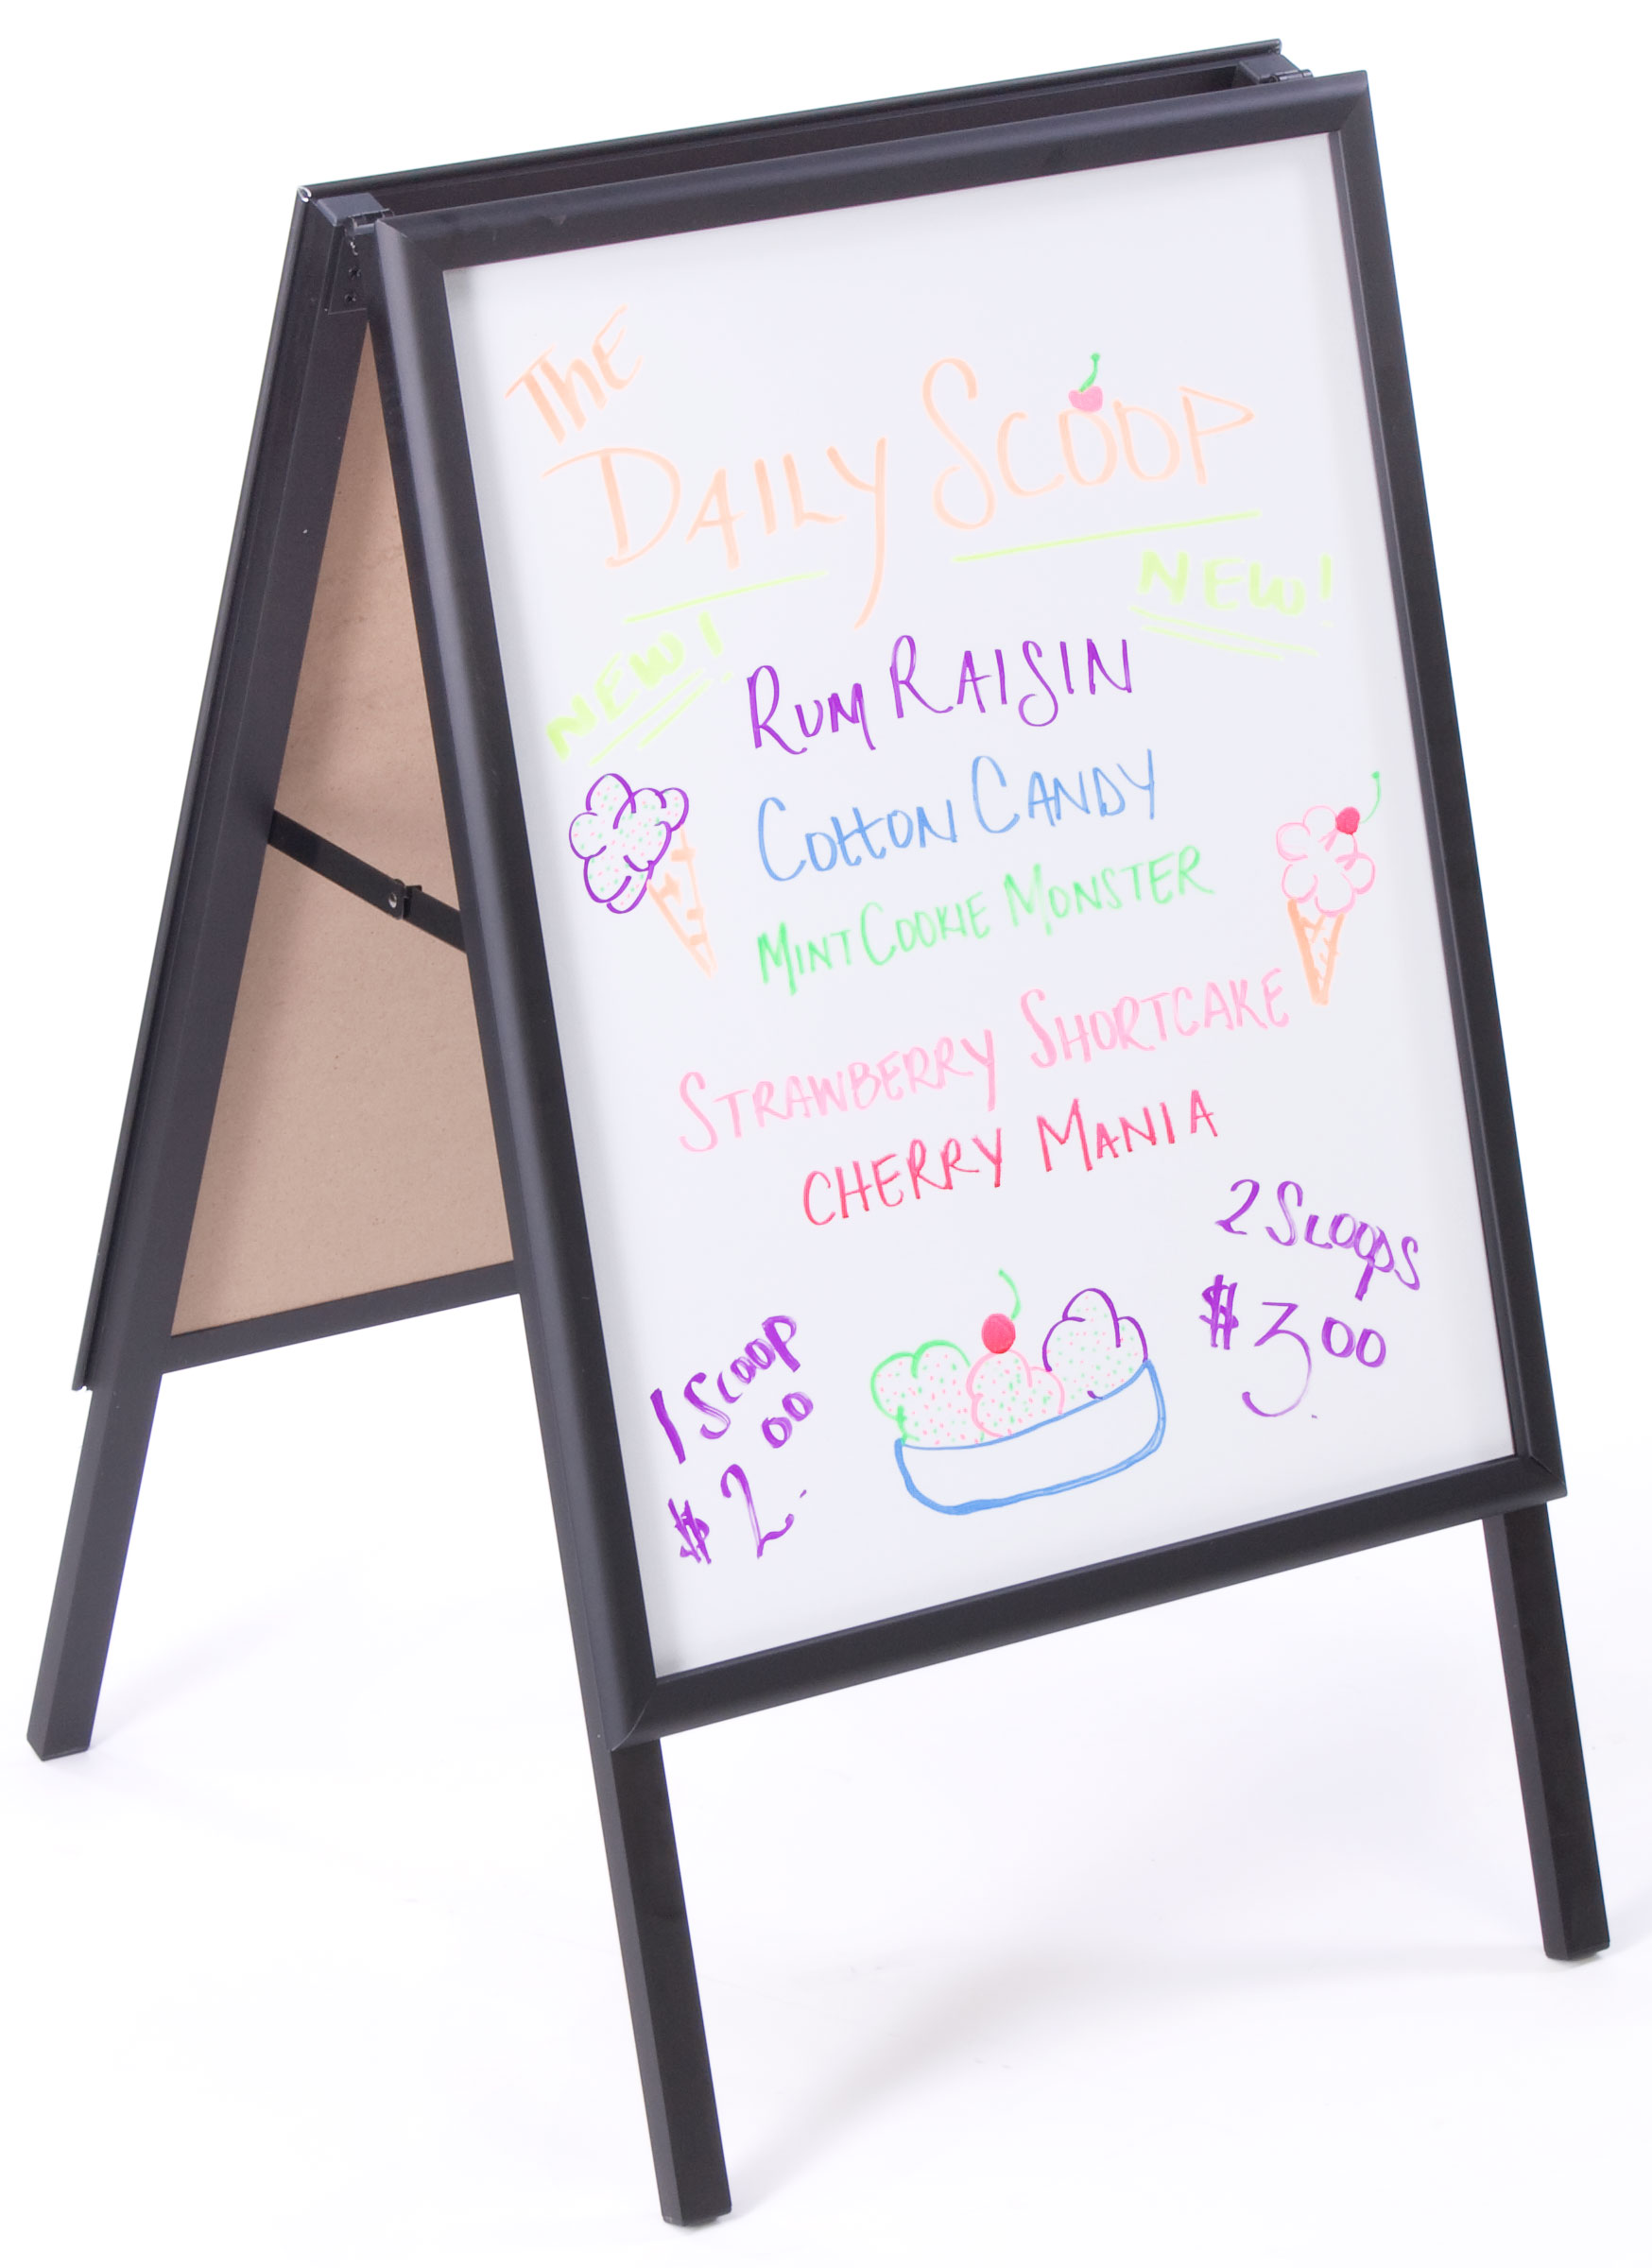 THE
DAILY SCOOP
NEW!
NEW!
RUM RAISIN
COTTON CANDY
MINT COOKIE MONSTER
STRAWBERRY SHORTCAKE
CHERRY MANIA
1 SCOOP
$2.00
2 SCOOPS
$3.00